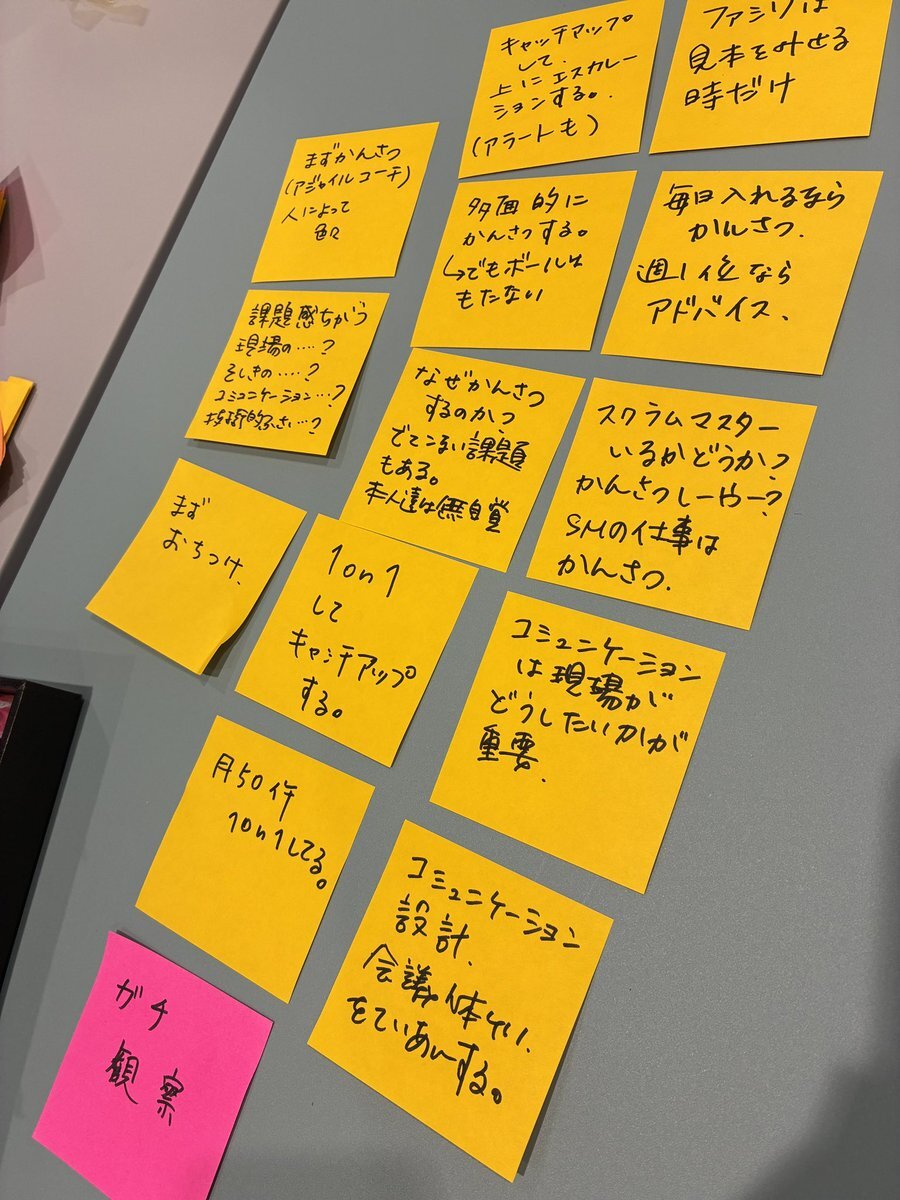 キャッチアップ
して、
上にエスカレー
ションする。
(アラートも)
ファシリは
見本をみせる
時だけ
まずかんさつ
(アジャイルコーチ)
人によって
色々
多面的に
かんさつする。
↳でもボールは
もたない
毎日入れるなら
かんさつ、
週1位なら
アドバイス、
課題感ちがう
現場の‥‥?
そしきの‥‥?
コミュニケーション‥?
技術的ふさい‥?
なぜかんさつ
するのか?
でてこない課題
もある。
本人達は無自覚
スクラムマスター
いるかどうか?
かんさつしーやー?
SMの仕事は
かんさつ、
まず
おちつけ、
1on1
して
キャッチアップ
する。
コミュニケーション
は現場が
どうしたいかが
重要、
月50件
1on1してる。
コミュニケーション
設計、
会議体せい、
をていあんする。
ガチ
観察